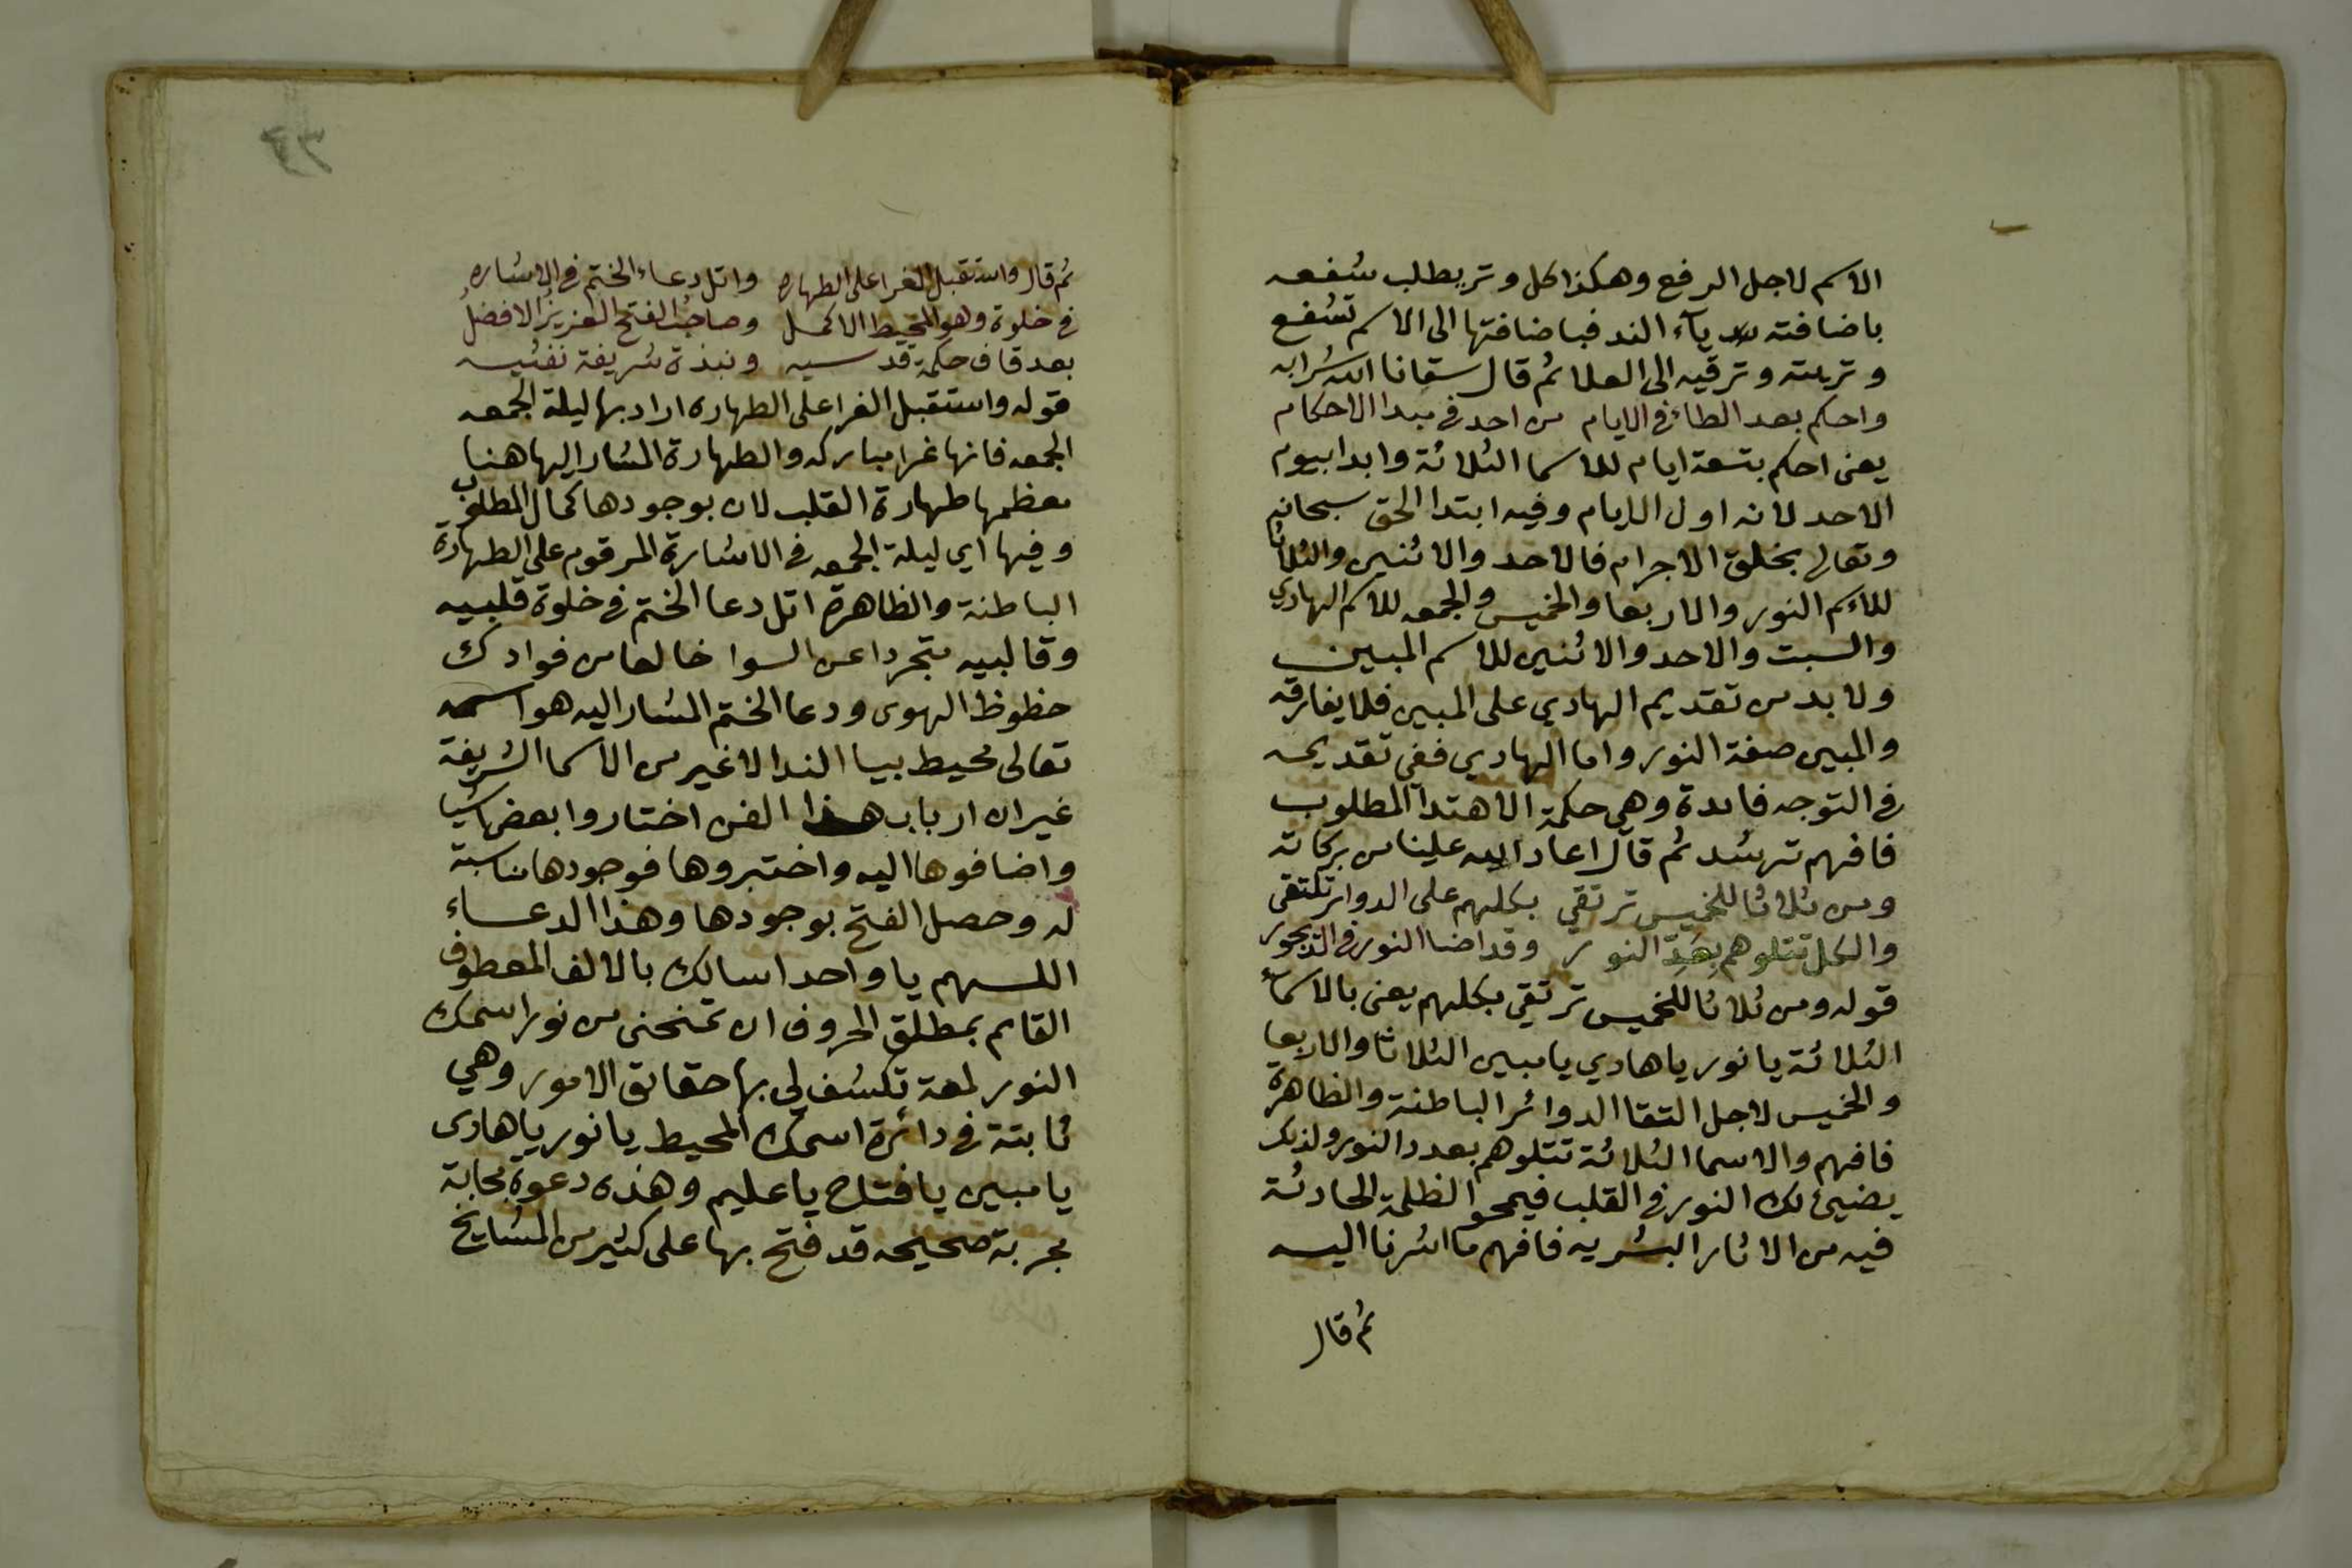 الاسم لاجل الرفع وهكذا كل وتر يطلب شفعه
باضافته يآء الند فباضافتها الى الاسم تشفع
وتريته وترقيه الى العلا ثم قال سقانا الله شرابه
واحكم بعد الطاء في الايام من احد في مبدا الاحكام
يعنى احكم بتسعة ايام للاسما الثلاثة وابدا بيوم
الاحد لانه اول الايام وفيه ابتدا الحق سبحانه
وتعالى بخلق الاجرام فالاحد والاثنين والثلاثا
للاسم النور والاربعا والخميس والجمعه للاسم الهادي
والسبت والاحد والاثنين للاسم المبين
ولا بد من تقديم الهادي على المبين فلا يفارقه
والمبين صفة النور واما الهادي ففي تقديمه
في التوجه فايدة وهي حكمة الاهتدآ المطلوب
فافهم ترشد ثم قال اعاد الله علينا من بركاته
ومن ثلاثا للخميس ترتقي بكلهم على الدواير تلتقى
والكل تتلوهم بعَدّ النور وقد اضا النور في الديجور
قوله ومن ثلاثا للخميس ترتقي بكلهم يعنى بالاسمآء
الثلاثة يا نور يا هادي يا مبين الثلاثا والاربعا
والخميس لاجل التقا الدوائر الباطنة والظاهرة
فافهم والاسما الثلاثة تتلوهم بعدد النور ولذلك
يضيئ لك النور في القلب فيمحو الظلمة الحادثة
فيه من الاثار البشريه فافهم ما اشرنا اليه
ثم قال
٣٦
ثم قال واستقبل الغرا على الطهاره واتل دعاء الختم في الاشاره
في خلوة وهو المحيط الاكمل وصاحبُ الفتح العزيزُ الافضلُ
بعد قاف حكمة قدسيه ونبذة شريفة نفيسه
قوله واستقبل الغرا على الطهاره اراد بها ليلة الجمعه
الجمعه فانها غرا مباركه والطهارة المشار اليها هنا
معظمها طهارة القلب لان بوجودها كمال المطلوب
وفيها اي ليلة الجمعه في الاشارة المرقوم على الطهارة
الباطنة والظاهرة اتل دعا الختم في خلوة قلبيه
وقالبيه متجردا عن السوا خالعا من فوادك
حظوظ الهوى ودعا الختم المشار اليه هو اسمه
تعالى محيط بيا الندا لا غير من الاسما الشريفة
غير ان ارباب هذا الفن اختاروا بعض اشيا
واضافوها اليه واختبروها فوجودها مناسبة
له وحصل الفتح بوجودها وهذا الدعاء
اللهم يا واحد اسالك بالالف المعطوف
القايم بمطلق الحروف ان تمنحنى من نور اسمك
النور لمعة تكشف لي بها حقايق الامور وهي
ثابتة في دائرة اسمك المحيط يا نور يا هادى
يا مبين يا فتاح يا عليم وهذه دعوة مجابة
مجربة صحيحه قد فتح بها على كثير من المشايخ